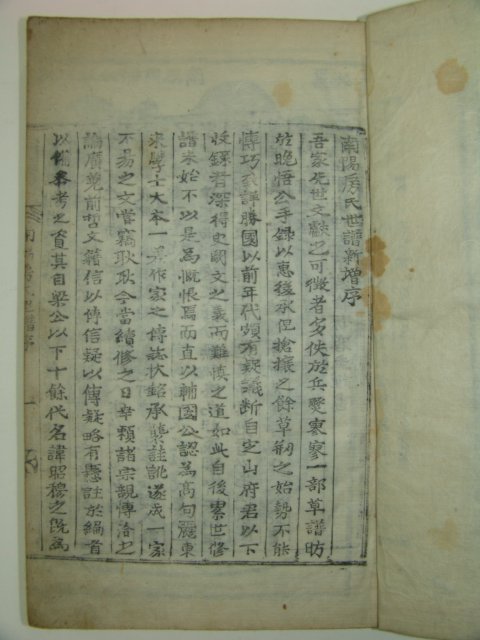 南陽房氏世譜新增序
吾家先世文獻之可徵者多佚於兵燹寒寥一部草譜昉
於晚悟公手錄以惠後承但搶攘之餘草刱之始勢不能
傳巧家譁勝國以前年代頗有疑議斷自芝山府君以下
收錄者深得史闕文之義而難愼之道如此自後累世修
譜未始不以是為慨恨焉而直以輔國公認為高句麗東
來學士大本一等作家之傳誌狀銘承襲註訛遂成一家
不易之文甞竊耿耿今當續修之日幸賴諸宗親博洽之
論廣蒐前哲文籍信以傳信疑以傳疑略有懸註於編首
以備參考之資其自梁公以下十餘代名諱昭穆之旣為